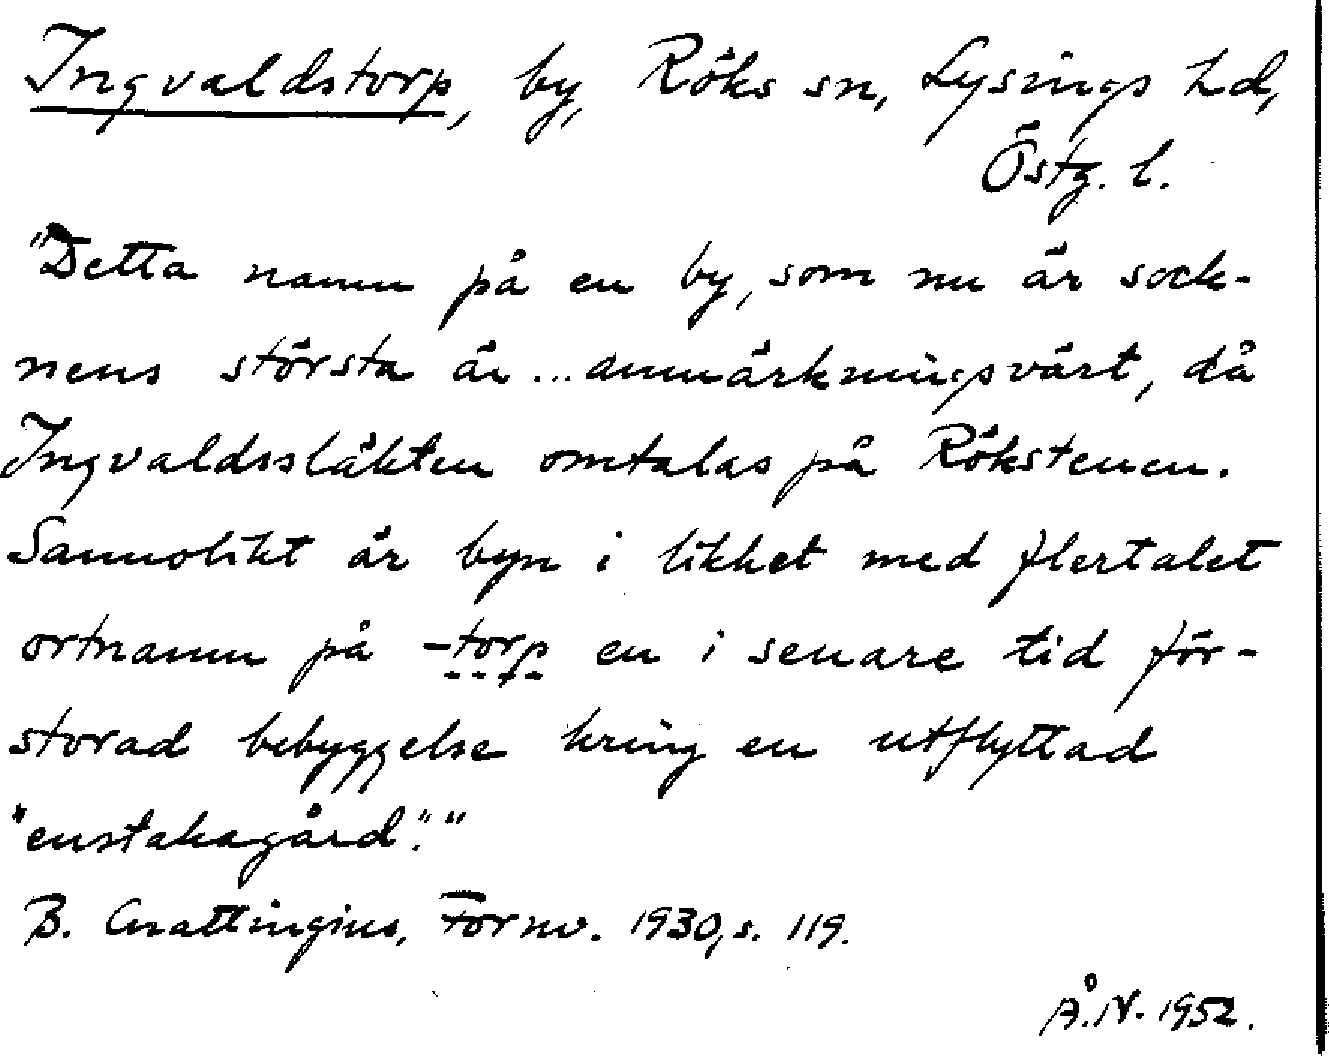 Ingvaldstorp, by, Röks sn, Lysings hd,
Östg. l.
"Detta namn på en by, som nu är sock-
nens största är ... anmärkningsvärt, då
Ingvaldssläkten omtalas på Rökstenen.
Sannolikt är byn i likhet med flertalet
ortnamn på -torp en i senare tid för-
storad bebyggelse kring en utflyttad
"enstakagård"."
B. Cnattingius, Fornv. 1930, s. 119.
Å.N. 1952.